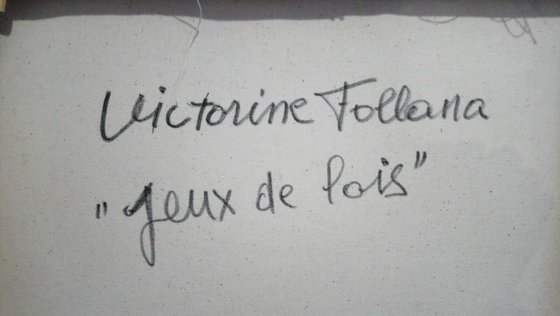 Victorine Follana
"Jeux de lois"